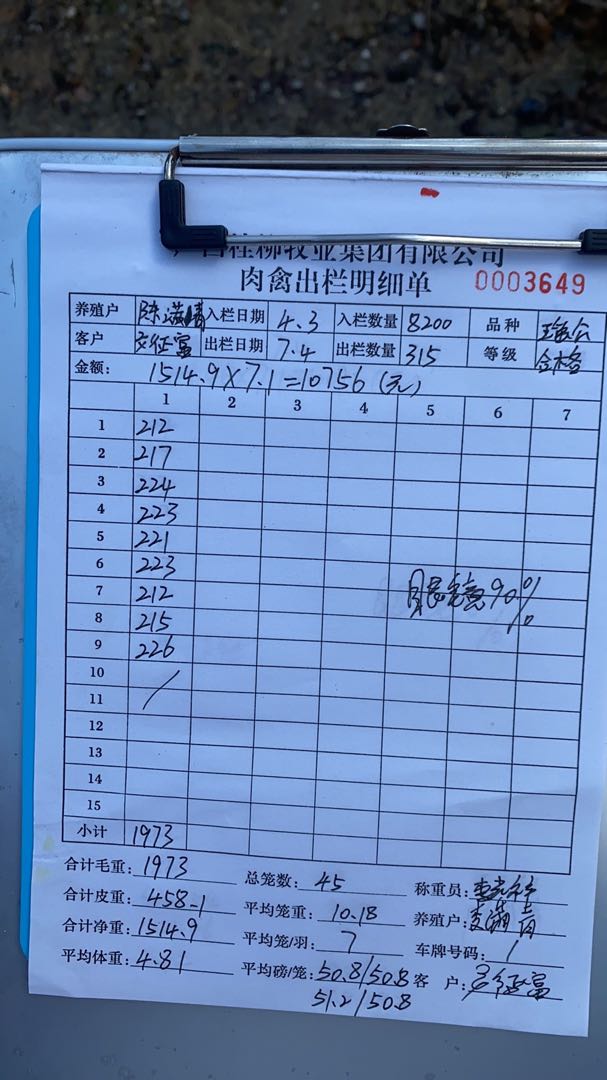 桂柳牧业集团有限公司
肉禽出栏明细单 0003649
养殖户 入栏日期 4.3 入栏数量 8200 品种
客户 出栏日期 7.4 出栏数量 315 等级 合格
金额: 1514.9×7.1=10756(元)
1 2 3 4 5 6 7
1 212
2 217
3 224
4 223
5 221
6 223
7 212 90%
8 215
9 226
10 /
11
12
13
14
15
小计 1973
合计毛重: 1973 总笼数: 45 称重员:
合计皮重: 458.1 平均笼重: 10.18 养殖户:
合计净重: 1514.9 平均笼/羽: 7 车牌号码: /
平均体重: 4.81 平均磅/笼: 50.8/50.8 客 户:
51.2/50.8